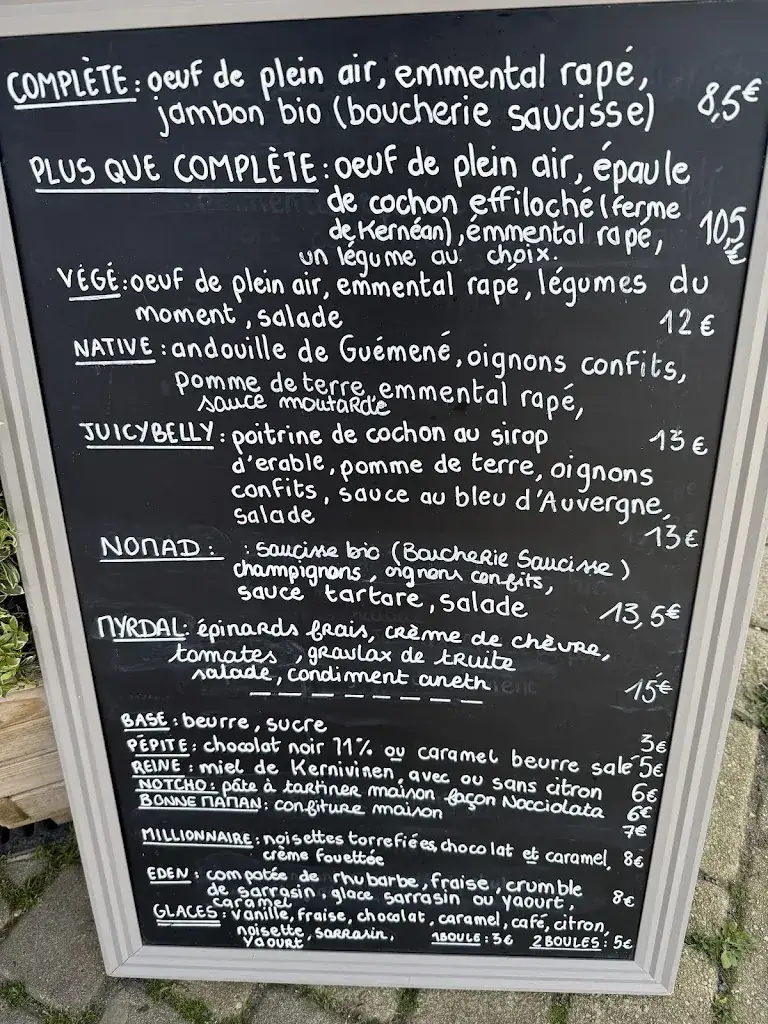 COMPLÈTE : oeuf de plein air, emmental rapé,
jambon bio (boucherie saucisse) 8,5€
PLUS QUE COMPLÈTE : oeuf de plein air, épaule
de cochon effiloché (ferme
de Kernéan), émmental rapé, 10,5
un légume au choix. €
VÉGÉ : oeuf de plein air, emmental rapé, légumes du
moment, salade 12€
NATIVE : andouille de Guémené, oignons confits,
pomme de terre, emmental rapé,
sauce moutarde
JUICYBELLY : poitrine de cochon au sirop 13€
d'erable, pomme de terre, oignons
confits, sauce au bleu d'Auvergne,
salade 13€
NOMAD : : saucisse bio (Boucherie Saucisse)
champignons, oignons confits,
sauce tartare, salade 13,5€
MYRDAL : épinards frais, crème de chèvre,
tomates, gravlax de truite
salade, condiment aneth 15€
BASE : beurre, sucre 3€
PÉPITE : chocolat noir 71% ou caramel beurre salé 5€
REINE : miel de Kernivinen, avec ou sans citron 6€
NOTCHO : pâte à tartiner maison façon Nocciolata 6€
BONNE MAMAN : confiture maison 7€
MILLIONNAIRE : noisettes torrefiées, chocolat et caramel, 8€
crème fouettée
EDEN : compotée de rhubarbe, fraise, crumble
de sarrasin, glace sarrasin ou yaourt, 8€
caramel
GLACES : vanille, fraise, chocolat, caramel, café, citron,
noisette, sarrasin, 1BOULE : 3€ 2BOULES : 5€
yaourt